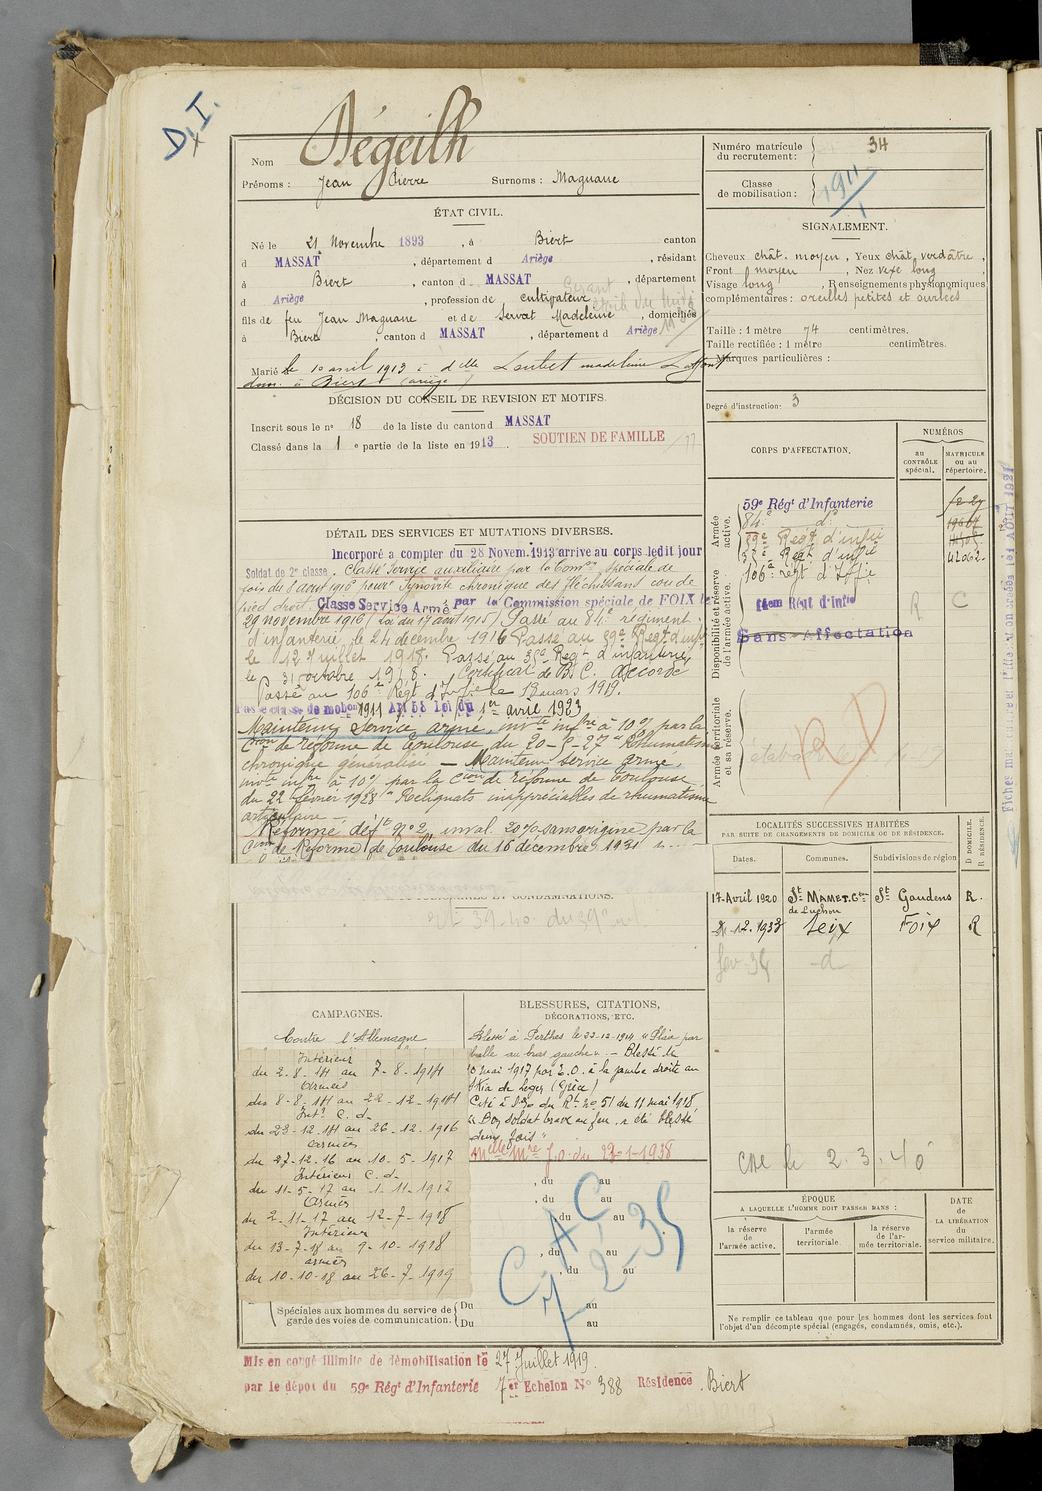 D.I.
Nom Dégeilh
Prénoms : Jean Pierre Surnoms : Maguane
Numéro matricule du recrutement : 34
Classe de mobilisation : 1911
ÉTAT CIVIL.
Né le 21 Novembre 1893, à Biert canton
d MASSAT, département d Ariège, résidant
à Biert, canton d MASSAT, département
d Ariège, profession de cultivateur
fils de feu Jean Maguane et de Servat Madeleine, domiciliés
à Biert, canton d MASSAT, département d Ariège
Marié le 10 avril 1913 à dlle Loubet madeleine
dom. à Biert (ariège)
SIGNALEMENT.
Cheveux chât. moyen, Yeux chât. verdâtre,
Front moyen, Nez vexe long,
Visage long, Renseignements physionomiques
complémentaires : oreilles petites et ourlées
Taille : 1 mètre 74 centimètres.
Taille rectifiée : 1 mètre centimètres.
Marques particulières :
Degré d'instruction : 3
DÉCISION DU CONSEIL DE REVISION ET MOTIFS.
Inscrit sous le n° 18 de la liste du canton d MASSAT
Classé dans la 1e partie de la liste en 1913. SOUTIEN DE FAMILLE
DÉTAIL DES SERVICES ET MUTATIONS DIVERSES.
Incorporé a compter du 28 Novem. 1913 arrive au corps ledit jour
Soldat de 2e classe. Classé Service auxiliaire par la Comon spéciale de
foix du 8 aout 1916 pour "Synovite chronique des fléchissans cou de
pied droit. Classé Service Armé par la Commission spéciale de FOIX le
29 novembre 1916 (Loi du 17 août 1915) Passé au 84e régiment
d'infanterie le 24 décembre 1916 Passé au 39e Regt d'infie
le 12 Juillet 1918. Passé au 35e Regt d'infanterie
le 31 octobre 1918. Certificat de B. C. accordé
Passé au 106e Régt d'Infie le 18 mars 1919.
Passé classe de mobon 1911 Art 58 Loi du 1er avril 1923
Maintenu service armé, invte infre à 10% par la
Cion de réforme de Toulouse du 20-5-27 "Rhumatisme
chronique généralisé — Maintenu service armé,
invte infre à 10% par la Cion de réforme de Toulouse
du 22 février 1928 "Reliquats inappréciables de rhumatisme
articulaire —
Réformé déft n° 2, inval. 20% sans origine par la
Cion de Réforme de Toulouse du 16 decembre 1931
CORPS D'AFFECTATION.
NUMÉROS
au CONTRÔLE spécial.
MATRICULE ou au répertoire.
Armée active.
59e Régt d'Infanterie
84e do
39e Regt d'infie
35e Regt d'infie 42062.
Disponibilité et réserve de l'armée active.
106e régt d'Infie
14em Régt d'Infie
R C
Sans Affectation
Armée territoriale et sa réserve.
R D
Fiches matricule 1er AOUT 1921
LOCALITÉS SUCCESSIVES HABITÉES
PAR SUITE DE CHANGEMENTS DE DOMICILE OU DE RÉSIDENCE.
D DOMICILE. R RÉSIDENCE.
Dates. Communes. Subdivisions de région
17-Avril 1920 St MAMET. Gne de Luchon St Gaudens R.
12.1933 Seix Foix R
fev-34 -d-
CRE le 2.3.40
CONDAMNATIONS.
CAMPAGNES.
Contre l'Allemagne
Intérieur
du 2-8-14 au 7-8-1914
Armées
du 8-8-14 au 22-12-1914
Intr C.d.
du 23-12-14 au 26-12-1916
armées
du 27-12-16 au 10-5-1917
Intérieur C.d.
du 11-5-17 au 1-11-1917
Armées
du 2-11-17 au 12-7-1918
Intérieur
du 13-7-18 au 9-10-1918
armées
du 10-10-18 au 26-7-1919
BLESSURES, CITATIONS,
DÉCORATIONS, ETC.
Blessé à Perthes le 22-12-1914 "Plaie par
balle au bras gauche". — Blessé le
10 mai 1917 par E.O. à la jambe droite au
Skra de Legen (Grèce)
Cité à l'Do du Rt n° 51 du 11 mai 1918
"Bon soldat brave au feu, a été blessé
deux fois"
Mlle Mre J.O. du 23-1-1938
, du au
, du au
, du au
, du au
, du au
C.A.C
7-2-35
Spéciales aux hommes du service de garde des voies de communication. Du au
Du au
ÉPOQUE
A LAQUELLE L'HOMME DOIT PASSER DANS :
la réserve de l'armée active.
l'armée territoriale.
la réserve de l'armée territoriale.
DATE de LA LIBÉRATION du service militaire.
Ne remplir ce tableau que pour les hommes dont les services font
l'objet d'un décompte spécial (engagés, condamnés, omis, etc.).
Mis en congé illimité de démobilisation le 27 Juillet 1919.
par le dépôt du 59e Régt d'Infanterie 7er Echelon N° 388 Résidence Biert